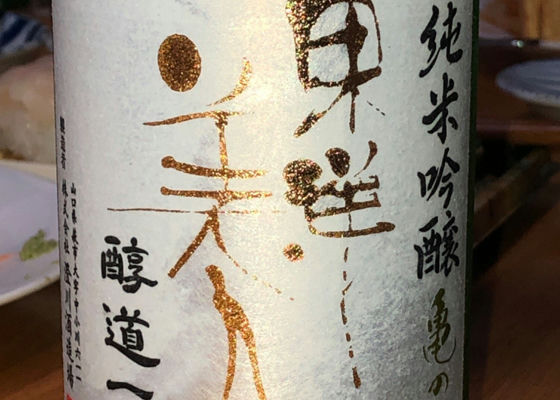 純米吟醸 亀の
東洋
美人
醇道一
山口県萩市大字中小川六一一
醸造者 株式会社澄川酒造場